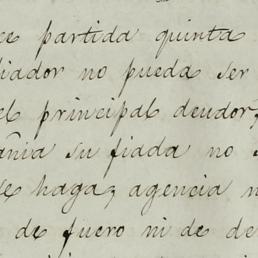 ce partida quinta
fiador no pueda ser
el principal deudor,
añia su fiada no
se haga; agencia
de fuero ni de de